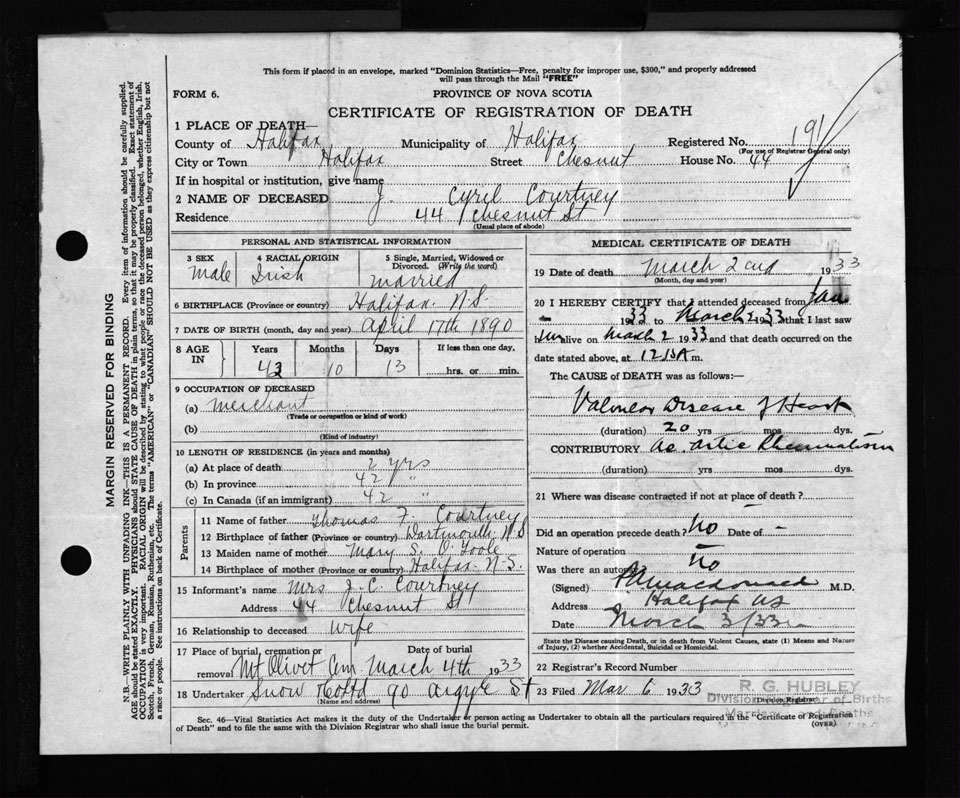 This form if placed in an envelope, marked "Dominion Statistics—Free, penalty for improper use, $300," and properly addressed
will pass through the Mail "FREE"
FORM 6.
PROVINCE OF NOVA SCOTIA
CERTIFICATE OF REGISTRATION OF DEATH
1 PLACE OF DEATH—
County of Halifax Municipality of Halifax Registered No. 191
(For use of Registrar General only)
City or Town Halifax Street Chesnut House No. 44
If in hospital or institution, give name
2 NAME OF DECEASED J. Cyril Courtney
Residence 44 Chesnut St
(Usual place of abode)
PERSONAL AND STATISTICAL INFORMATION
3 SEX 4 RACIAL ORIGIN 5 Single, Married, Widowed or
Divorced. (Write the word)
Male Irish Married
6 BIRTHPLACE (Province or country) Halifax. N.S.
7 DATE OF BIRTH (month, day and year) April 17th 1890
8 AGE IN Years Months Days If less than one day,
42 10 13 hrs. or min.
9 OCCUPATION OF DECEASED
(a) Merchant
(Trade or occupation or kind of work)
(b)
(Kind of industry)
10 LENGTH OF RESIDENCE (in years and months)
(a) At place of death 2 yrs
(b) In province 42 "
(c) In Canada (if an immigrant) 42 "
Parents
11 Name of father Thomas F. Courtney
12 Birthplace of father (Province or country) Dartmouth N.S
13 Maiden name of mother Mary S. O'Toole
14 Birthplace of mother (Province or country) Halifax. N.S.
15 Informant's name Mrs J. C. Courtney
Address 44 Chesnut St
16 Relationship to deceased Wife
17 Place of burial, cremation or Date of burial
removal Mt Olivet Cem. March 4th 1933
18 Undertaker Snow & Co Ltd 90 Argyle St
(Name and address)
MEDICAL CERTIFICATE OF DEATH
19 Date of death March 2nd 1933
(Month, day and year)
20 I HEREBY CERTIFY that I attended deceased from Jan
1933 to March 2 1933 that I last saw
him alive on March 2 1933 and that death occurred on the
date stated above, at 12 15 A m.
The CAUSE of DEATH was as follows:
Valvular Disease of Heart
(duration) 20 yrs mos dys.
CONTRIBUTORY Ac. Artic Rheumatism
(duration) yrs. mos. dys.
21 Where was disease contracted if not at place of death?
Did an operation precede death? No Date of –
Nature of operation –
Was there an autopsy No
(Signed) Macdonald M.D.
Address Halifax NS
Date March 3/33
State the Disease causing Death, or in death from Violent Causes, state (1) Means and Nature
of Injury, (2) whether Accidental, Suicidal or Homicidal.
22 Registrar's Record Number
23 Filed Mar 6 1933
R. G. HUBLEY
Division Registrar of Births
(Division Registrar)
Sec. 46—Vital Statistics Act makes it the duty of the Undertaker or person acting as Undertaker to obtain all the particulars required in the "Certificate of Registration
of Death" and to file the same with the Division Registrar who shall issue the burial permit.
(OVER)
MARGIN RESERVED FOR BINDING
N.B.—WRITE PLAINLY WITH UNFADING INK—THIS IS A PERMANENT RECORD. Every item of information should be carefully supplied.
AGE should be stated EXACTLY. PHYSICIANS should STATE CAUSE OF DEATH in plain terms, so that it may be properly classified. Exact statement of
OCCUPATION is very important. RACIAL ORIGIN will be described by stating to what people or race the deceased person belonged, whether English, Irish,
Scotch, French, German, Russian, Ruthenian, etc. The terms "AMERICAN" or "CANADIAN" SHOULD NOT BE USED as they express citizenship but not
a race or people. See instructions on back of Certificate.